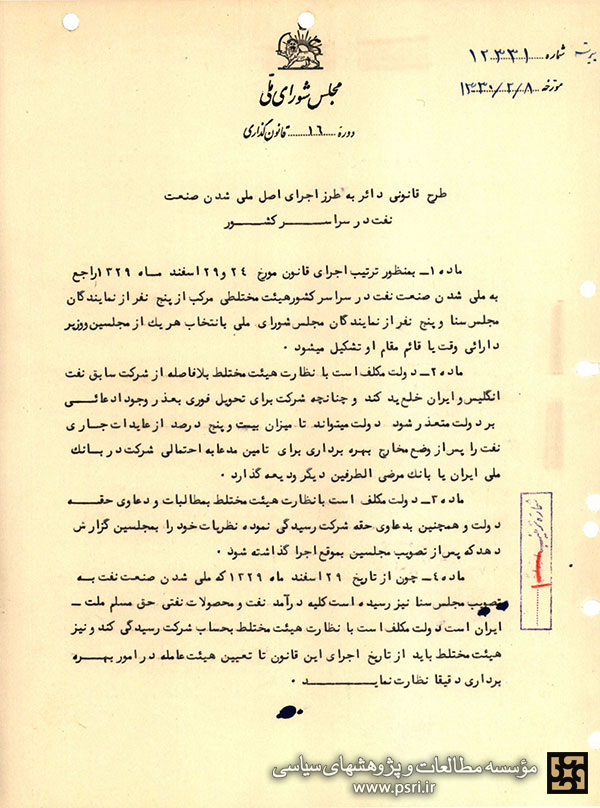 شماره ۱۲۳۳۱
مورخه ۱۳۳۰/۲/۸
مجلس شورای ملی
دوره ۱۶ قانون گذاری
طرح قانونی دائر به طرز اجرای اصل ملی شدن صنعت
نفت در سراسر کشور
ماده ۱ـ بمنظور ترتیب اجرای قانون مورخ ۲۴ و ۲۹ اسفند ماه ۱۳۲۹ راجع
به ملی شدن صنعت نفت در سراسر کشور هیئت مختلطی مرکب از پنج نفر از نمایندگان
مجلس سنا و پنج نفر از نمایندگان مجلس شورای ملی بانتخاب هر یک از مجلسین و وزیر
دارائی وقت یا قائم مقام او تشکیل میشود ۰
ماده ۲ـ دولت مکلف است با نظارت هیئت مختلط بلافاصله از شرکت سابق نفت
انگلیس و ایران خلع ید کند و چنانچه شرکت برای تحویل فوری بعذر وجود ادعائی
بر دولت متعذر شود دولت میتواند تا میزان بیست و پنج درصد از عایدات جاری
نفت را پس از وضع مخارج بهره برداری برای تامین مدعابه احتمالی شرکت در بانک
ملی ایران یا بانک مرضی الطرفین دیگر ودیعه گذارد ۰
ماده ۳ـ دولت مکلف است با نظارت هیئت مختلط بمطالبات و دعاوی حقه
دولت و همچنین بدعاوی حقه شرکت رسیدگی نموده نظریات خود را بمجلسین گزارش
دهد که پس از تصویب مجلسین بموقع اجرا گذاشته شود ۰
ماده ۴ـ چون از تاریخ ۲۹ اسفند ماه ۱۳۲۹ که ملی شدن صنعت نفت به
تصویب مجلس سنا نیز رسیده است کلیه درآمد نفت و محصولات نفتی حق مسلم ملت ـ
ایران است دولت مکلف است با نظارت هیئت مختلط بحساب شرکت رسیدگی کند و نیز
هیئت مختلط باید از تاریخ اجرای این قانون تا تعیین هیئت عامله در امور بهره
برداری دقیقا نظارت نماید ۰
مؤسسه مطالعات و پژوهشهای سیاسی
www.psri.ir